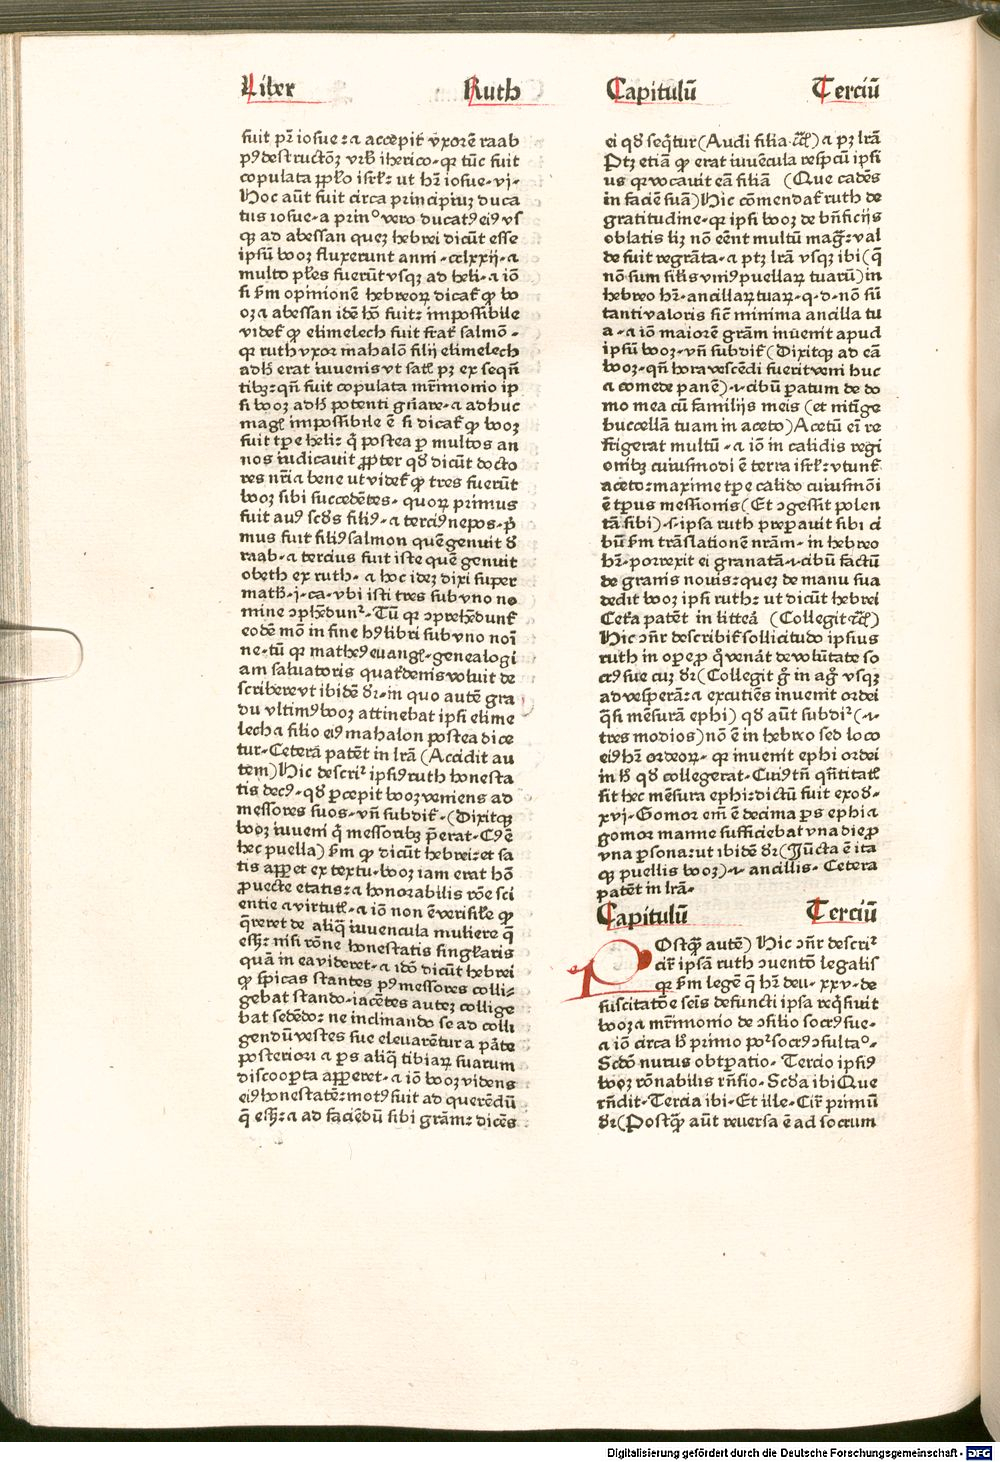 Liber Ruth
fuit pr̄ iosue: a accepit̄ vxorē raab
pꝰ destructōꝫ vrb̄ iherico· qꝛ tūc fuit
copulata ꝓpl̄o isrl̄: ut hꝫ iosue· vj·
Hoc aūt fuit circa principiuꝫ duca
tus iosue· a prin° vero ducatꝰ eiꝰ vs
qꝫ ad abessan queꝫ hebrei dicūt esse
ipsū booꝫ fluxerunt anni· cclxxij· a
multo pl̄es fuerūt vsqꝫ ad heli· a iō
si ẜm opinionē hebreoꝝ dicat̄ ꝙ bo
oꝫ a abessan idē hō fuit: impossibile
videt̄ ꝙ elimelech fuit frat̄ salmō·
qꝛ ruth vxor mahalō filij elimelech
adh̄ erat iuuenis vt satl̄ pꝫ ex seqn̄
tibꝫ: qn̄ fuit copulata mr̄imonio ip
si booꝫ adh̄ potenti gn̄are· a adhuc
magl̄ impossibile ē si dicat̄ ꝙ booꝫ
fuit tp̄e heli: q̄ postea ꝑ multos an
nos iudicauit ꝓpter qd̄ dicūt docto
res nr̄ia bene ut videt̄ ꝙ tres fuerūt
booꝫ sibi succedētes· quoꝝ primus
fuit auꝰ scd̄s filiꝰ· a terciꝰ nepos· p̄
mus fuit filiꝰ salmon quē genuit d̄
raab· a tercius fuit iste quē genuit
obeth ex ruth· a hoc ideꝫ dixi super
math̄· j· ca· vbi isti tres sub vno no
mine ꝯp̄hēdunt̄· Tū qꝛ ꝯprehēdunt̄
eodē mō in fine hꝰ libri sub vno noī
ne· tū qꝛ matheꝰ euangl̄· genealogi
am saluatoris quat̄denis voluit de
scribere vt ibidē d̄r· in quo autē gra
du vltimꝰ booꝫ attinebat ipsi elime
lech a filio eiꝰ mahalon postea dice
tur· Cetera patēt in lr̄a (Accidit au
tem) Hic descrit̄ ipsiꝰ ruth honesta
tis decꝰ· qd̄ ꝑcepit booꝫ veniens ad
messores suos· vn̄ subdit̄· (Dixitqꝫ
booꝫ iuueni q̄ messoribꝫ p̄erat· Cꝰ ē
hec puella) ẜm ꝙ dicūt hebrei: et sa
tis appꝫ et ex textu· booꝫ iam erat hō
ꝓuecte etatis: a honorabilis rōe sci
entie a virtutl̄· a iō non ē verisil̄e ꝙ
q̄reret de aliq̄ iuuencula muliere q̄
esꝫ: nisi rōne honestatis singl̄aris
quā in ea videret· a idō dicūt hebrei
ꝙ spicas stantes pꝰ messores colli⸗
gebat stando· iacētes auteꝫ collige
bat sedēdo: ne inclinando se ad colli
gendū vestes sue eleuarētur a pāte
posteriori a ꝑs aliq̄ tibiaꝝ suarum
discooꝑta apꝑeret· a iō booꝫ videns
eiꝰ honestatē: motꝰ fuit ad querēdū
q̄ esꝫ: a ad faciēdū sibi grām: dicēs
Capitulū Terciū
ei qd̄ seqr̄tur (Audi filia· ꝛc̄) a pꝫ lr̄a
Ptꝫ etiā ꝙ erat iuuēcula respcū ipsi
us qꝛ vocauit eā filiā (Que cadēs
in faciē suā) Hic cōmendat̄ ruth de
gratitudine· qꝛ ipsi booꝫ de bn̄ficijs
oblatis lꝫ nō eēnt multū maḡ: val
de fuit regrāta· a ptꝫ lr̄a vsqꝫ ibi (q̄
nō sum silis vniꝰ puellaꝝ tuarū) in
hebreo hr̄· ancillaꝝ tuaꝝ· q· d· nō sū
tanti valoris siē minima ancilla tu
a· a iō maiorē grām inuenit apud
ipsū booꝫ· vn̄ subdit̄ (Dixitqꝫ ad eā
booꝫ· qn̄ hora vescēdi fuerit veni huc
a comede panē)· ⁊ cibū ꝑatum de do
mo mea cū familijs meis (et nitīge
buccellā tuam in aceto) Acetū eī re
frigerat multū· a iō in calidis regi
onibꝫ cuiusmodi ē terra isrl̄: vtunt̄
aceto: maxime tp̄e calido cuiusmōi
ē tp̄us messionis (Et ꝯgessit polen
tā sibi)· s· ipsa ruth preꝑauit sibi ci
bū ẜm trāslationē nrām· in hebreo
hr̄· porrexit ei granatā· ⁊ cibū factū
de granis nouis: queꝫ de manu sua
dedit booꝫ ipsi ruth: ut dicūt hebrei
Cet̄a patēt in litteā (Collegit ꝛc̄)
Hic ꝯn̄r describit̄ sollicitudo ipsius
ruth in oꝑe ꝑ q̄ venāt de volūtate so
crꝰ sue cuꝫ d̄r (Collegit ḡ in ag̊ vsqꝫ
ad vesperā: a excutiēs inuenit ordei
q̄si mēsurā ephi) qd̄ aūt subdit̄ (⁊
tres modios) nō ē in hebreo sed loco
eiꝰ hr̄ ordeoꝝ· qꝛ inuenit ephi ordei
in h̄ qd̄ collegerat· Cuiꝰ tn̄ qn̄titatl̄
sit hec mēsura ephi: dictū fuit exod̄·
xvj· Gomor em̄ ē decima ꝑs ephi a
gomor manne sufficiebat vna die ꝓ
vna ꝑsona: ut ibidē d̄r (Jūcta ē ita
qꝫ puellis booꝫ)· ⁊ ancillis· Cetera
patēt in lr̄a·
Capitulū Terciū
POstqꝫ autē) Hic ꝯn̄r descrit̄
cir̄ ipsā ruth ꝯuentō legalis
qꝛ ẜm legē q̄ hꝫ deu· xxv· de
suscitatōe seīs defuncti ipsa reqsiuit
booꝫ a mr̄imonio de ꝯsilio socrꝰ sue·
a iō circa h̄ primo pot̄ socrꝰ ꝯsultao·
Scdō nurus obtꝑatio· Tercio ipsiꝰ
booꝫ rōnabilis rn̄sio· Scd̄a ibi Que
rn̄dit· Tercia ibi· Et ille· Cir̄ primū
d̄r (Postqꝫ aūt reuersa ē ad socrum
Digitalisierung gefördert durch die Deutsche Forschungsgemeinschaft - DFG